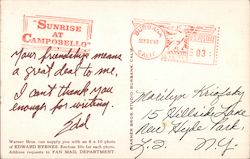 "SUNRISE
AT
CAMPOBELLO"
BURBANK
CALIF.
03
Your friendship means
a great deal to me.
I can't thank you
enough for writing.
Warner Bros. can supply you with an 8 x 10 photo
of EDWARD BYRNES. Enclose 10c for each photo.
Address requests to FAN MAIL DEPARTMENT.
Marilyn
15 Hillside Lane
New Hyde Park,
L.I. N.Y.